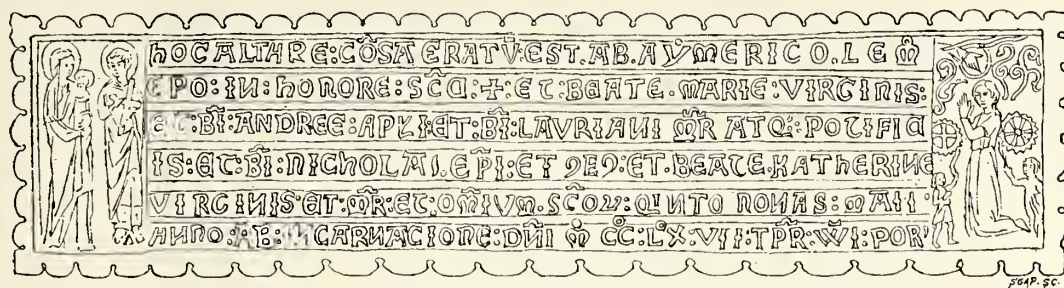 hOC ALTARE : CŌSAERATV̄ . EST . AB . AYMERICO . LEM̄
EPO : IN : hONORE : SC̄A : + : ET : BEATE . MARIE : VIRGINIS :
ET : BĪ : ANDREE : APLI : ET : BĪ : LAVRIANI M̄R ATQ : POTIFIC
IS : ET : BĪ : NIChOLAI . EP̄I : ET 9E9 : ET . BEATE . KAThERINE
VIRGINIS : ET : M̄R : ET : OM̄IVM . SC̄OꝜ : QINTO NONAS : MAII :
ANNO : AB : INCARNACIONE : DN̄I M̄ CC̄ : LX̊ : VII : TP̄R : W̄I : POR'
SGAP. SC.